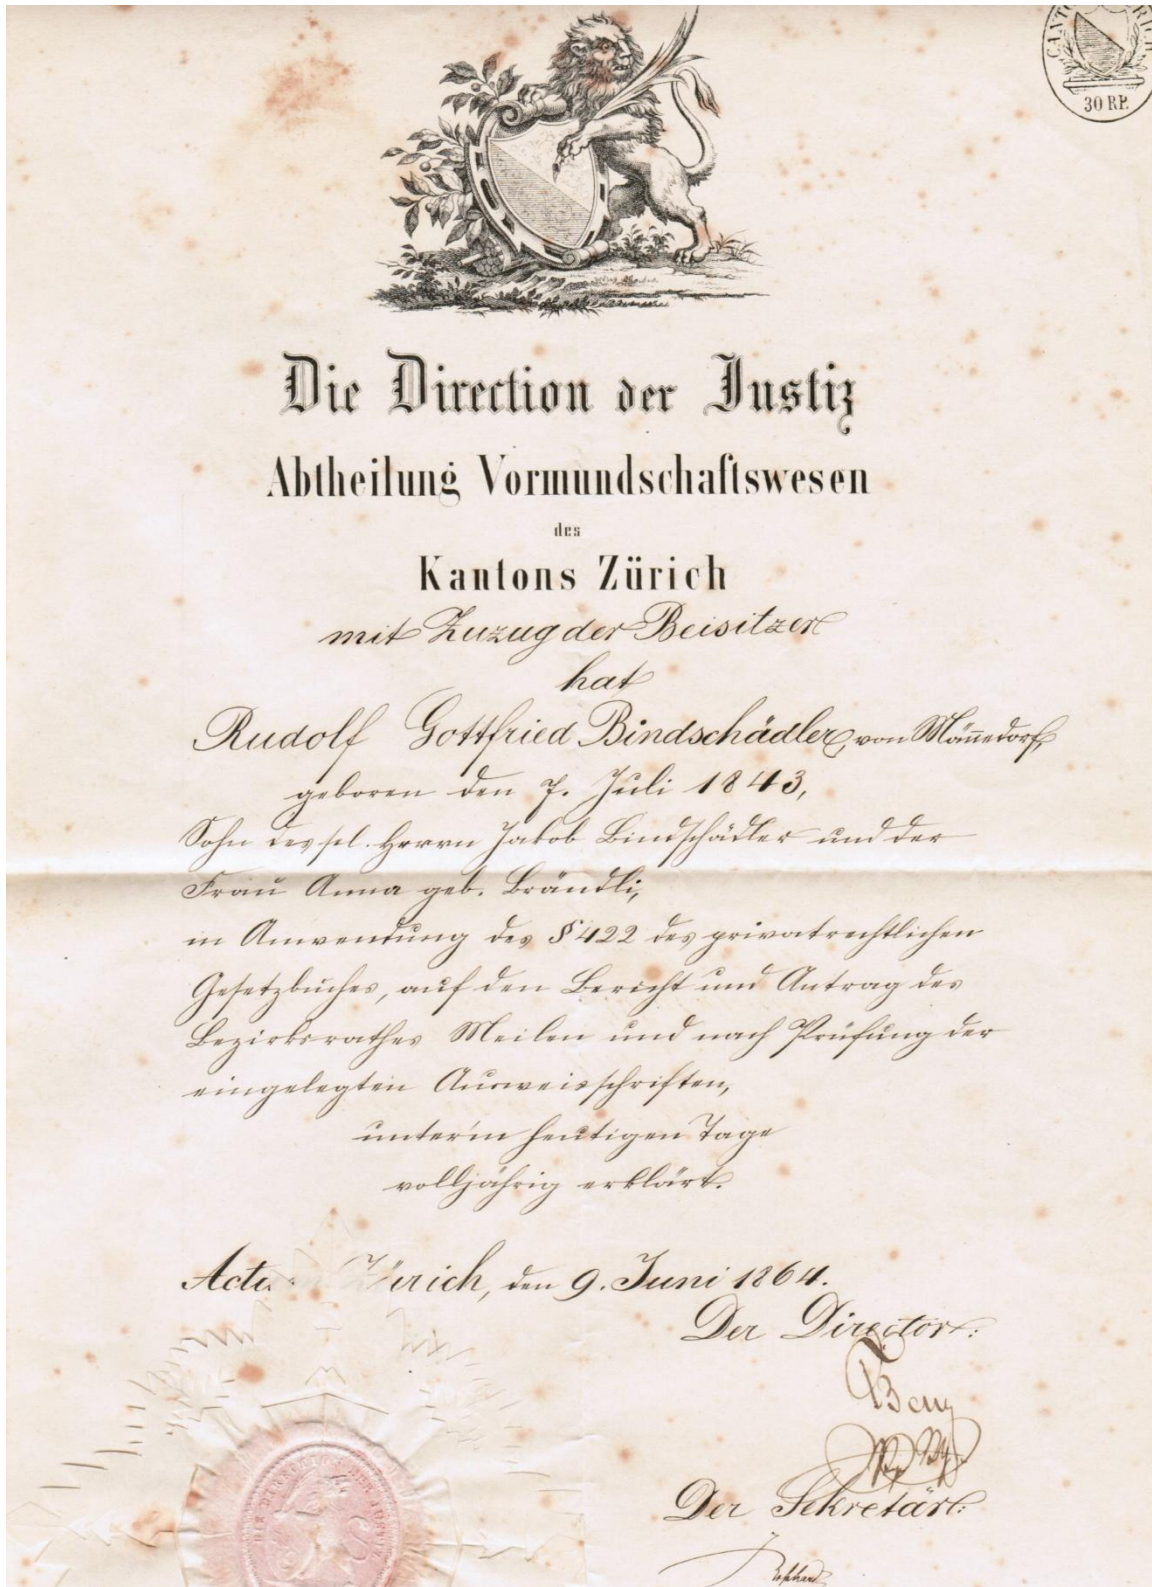 CANTON ZÜRICH
30 RP.
Die Direction der Justiz
Abtheilung Vormundschaftswesen
des
Kantons Zürich
mit Zuzug der Beisitzer
hat
Rudolf Gottfried Bindschädler, von Mäñedorf,
geboren den 7. Juli 1843,
Sohn des sel. Herrn Jakob Bindschädler und der
Frau Anna geb. Brändli,
in Anwendung des § 422 des privatrechtlichen
Gesetzbuches, auf den Bericht und Antrag des
Bezirksrathes Meilen und nach Prüfung der
eingelegten Ausweisschriften,
unter'm heutigen Tage
volljährig erklärt.
Zürich, den 9. Juni 1864.
Der Director:
Der Sekretär:
DIE DIREKTION DER JUSTIZ